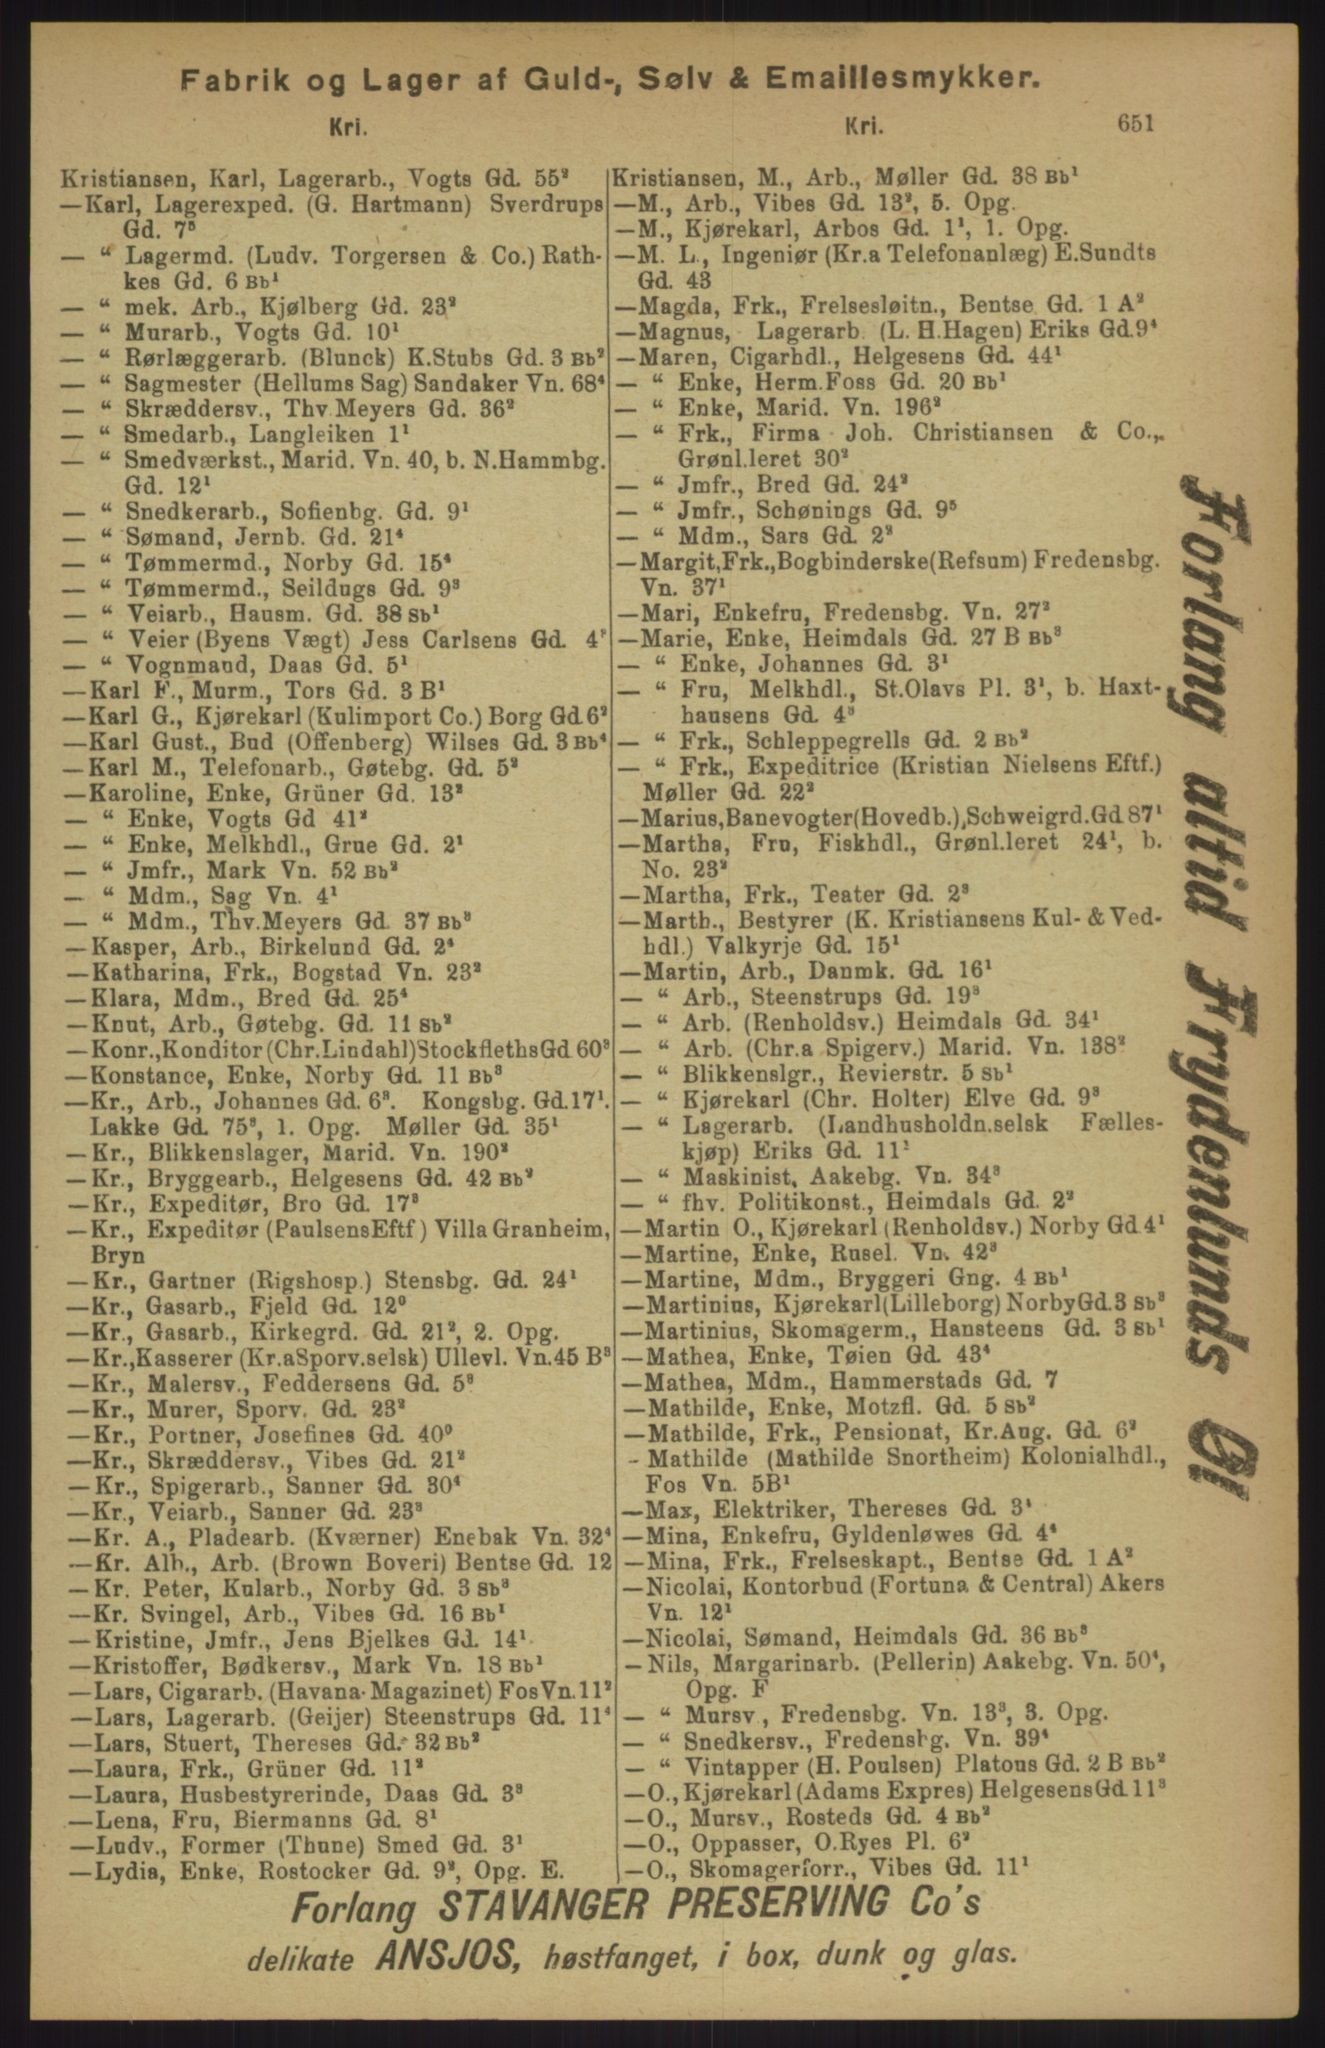 Fabrik og Lager af Guld-, Sølv & Emaillesmykker.
Kri.
Kri.
651
Kristiansen, Karl, Lagerarb., Vogts Gd. 55²
—Karl, Lagerexped. (G. Hartmann) Sverdrups
Gd. 7⁵
— “ Lagermd. (Ludv. Torgersen & Co.) Rath-
kes Gd. 6 Bb¹
— “ mek. Arb., Kjølberg Gd. 23²
— “ Murarb., Vogts Gd. 10¹
— “ Rørlæggerarb. (Blunck) K.Stubs Gd. 3 Bb²
— “ Sagmester (Hellums Sag) Sandaker Vn. 68⁴
— “ Skræddersv., Thv Meyers Gd. 36²
— “ Smedarb., Langleiken 1¹
— “ Smedværkst., Marid. Vn. 40, b. N.Hammbg.
Gd. 12¹
— “ Snedkerarb., Sofienbg. Gd. 9¹
— “ Sømand, Jernb. Gd. 21⁴
— “ Tømmermd., Norby Gd. 15⁴
— “ Tømmermd., Seildugs Gd. 9³
— “ Veiarb., Hausm. Gd. 38 Sb¹
— “ Veier (Byens Vægt) Jess Carlsens Gd. 4
— “ Vognmand, Daas Gd. 5¹
—Karl F., Murm., Tors Gd. 3 B¹
—Karl G., Kjørekarl (Kulimport Co.) Borg Gd 6²
—Karl Gust., Bud (Offenberg) Wilses Gd. 3 Bb⁴
—Karl M., Telefonarb., Gøtebg. Gd. 5²
—Karoline, Enke, Grüner Gd. 13²
— “ Enke, Vogts Gd 41²
— “ Enke, Melkhdl., Grue Gd. 2¹
— “ Jmfr., Mark Vn. 52 Bb²
— “ Mdm., Sag Vn. 4¹
— “ Mdm., Thv.Meyers Gd. 37 Bb³
—Kasper, Arb., Birkelund Gd. 2⁴
—Katharina, Frk., Bogstad Vn. 23²
—Klara, Mdm., Bred Gd. 25⁴
—Knut, Arb., Gøtebg. Gd. 11 Sb²
—Konr., Konditor (Chr.Lindahl) Stockfleths Gd 60³
—Konstance, Enke, Norby Gd. 11 Bb³
—Kr., Arb., Johannes Gd. 6³. Kongsbg. Gd.17¹.
Lakke Gd. 75³, 1. Opg. Møller Gd. 35¹
—Kr., Blikkenslager, Marid. Vn. 190²
—Kr., Bryggearb., Helgesens Gd. 42 Bb²
—Kr., Expeditør, Bro Gd. 17³
—Kr., Expeditør (Paulsens Eftf) Villa Granheim,
Bryn
—Kr., Gartner (Rigshosp.) Stensbg. Gd. 24¹
—Kr., Gasarb., Fjeld Gd. 12⁰
—Kr., Gasarb., Kirkegrd. Gd. 21², 2. Opg.
—Kr., Kasserer (Kr.a Sporv.selsk) Ullevl. Vn. 45 B³
—Kr., Malersv., Feddersens Gd. 5³
—Kr., Murer, Sporv. Gd. 23²
—Kr., Portner, Josefines Gd. 40⁰
—Kr., Skræddersv., Vibes Gd. 21²
—Kr., Spigerarb., Sanner Gd. 30⁴
—Kr., Veiarb., Sanner Gd. 23³
—Kr. A., Pladearb. (Kværner) Enebak Vn. 32⁴
—Kr. Alb., Arb. (Brown Boveri) Bentse Gd. 12
—Kr. Peter, Kularb., Norby Gd. 3 Sb³
—Kr. Svingel, Arb., Vibes Gd. 16 Bb¹
—Kristine, Jmfr., Jens Bjelkes Gd. 14¹
—Kristoffer, Bødkersv., Mark Vn. 18 Bb¹
—Lars, Cigararb. (Havana-Magazinet) Fos Vn. 11²
—Lars, Lagerarb. (Geijer) Steenstrups Gd. 11⁴
—Lars, Stuert, Thereses Gd. 32 Bb²
—Laura, Frk., Grüner Gd. 11²
—Laura, Husbestyrerinde, Daas Gd. 3³
—Lena, Fru, Biermanns Gd. 8¹
—Ludv., Former (Thune) Smed Gd. 3¹
—Lydia, Enke, Rostocker Gd. 9², Opg. E.
Kristiansen, M., Arb., Møller Gd. 38 Bb¹
—M., Arb., Vibes Gd. 13², 5. Opg.
—M., Kjørekarl, Arbos Gd. 1¹, 1. Opg.
—M. L., Ingeniør (Kr.a Telefonanlæg) E.Sundts
Gd. 43
—Magda, Frk., Frelsesløitn., Bentse Gd. 1 A²
—Magnus, Lagerarb (L. H.Hagen) Eriks Gd.9⁴
—Maren, Cigarhdl., Helgesens Gd. 44¹
— “ Enke, Herm.Foss Gd. 20 Bb¹
— “ Enke, Marid. Vn. 196²
— “ Frk., Firma Joh. Christiansen & Co.,
Grønl.leret 30²
— “ Jmfr., Bred Gd. 24²
— “ Jmfr., Schønings Gd. 9⁵
— “ Mdm., Sars Gd. 2²
—Margit, Frk., Bogbinderske (Refsum) Fredensbg.
Vn. 37¹
—Mari, Enkefru, Fredensbg. Vn. 27²
—Marie, Enke, Heimdals Gd. 27 B Bb³
— “ Enke, Johannes Gd. 3¹
— “ Fru, Melkhdl., St.Olavs Pl. 3¹, b. Haxt-
hausens Gd. 4³
— “ Frk., Schleppegrells Gd. 2 Bb²
— “ Frk., Expeditrice (Kristian Nielsens Eftf.)
Møller Gd. 22²
—Marius, Banevogter (Hovedb.), Schweigrd.Gd 87¹
—Martha, Fru, Fiskhdl., Grønl.leret 24¹, b.
No. 23²
—Martha, Frk., Teater Gd. 2³
—Marth., Bestyrer (K. Kristiansens Kul- & Ved-
hdl.) Valkyrje Gd. 15¹
—Martin, Arb., Danmk. Gd. 16¹
— “ Arb., Steenstrups Gd. 19³
— “ Arb. (Renholdsv.) Heimdals Gd. 34¹
— “ Arb. (Chr.a Spigerv.) Marid. Vn. 138²
— “ Blikkenslgr., Revierstr. 5 Sb¹
— “ Kjørekarl (Chr. Holter) Elve Gd. 9³
— “ Lagerarb. (Landhusholdn.selsk Fælles-
kjøp) Eriks Gd. 11¹
— “ Maskinist, Aakebg. Vn. 34³
— “ fhv. Politikonst., Heimdals Gd. 2²
—Martin O., Kjørekarl (Renholdsv.) Norby Gd 4¹
—Martine, Enke, Rusel. Vn. 42³
—Martine, Mdm., Bryggeri Gng. 4 Bb¹
—Martinius, Kjørekarl (Lilleborg) Norby Gd. 3 Sb³
—Martinius, Skomagerm., Hansteens Gd. 3 Sb¹
—Mathea, Enke, Tøien Gd. 43⁴
—Mathea, Mdm., Hammerstads Gd. 7
—Mathilde, Enke, Motzfl. Gd. 5 Sb²
—Mathilde, Frk., Pensionat, Kr.Aug. Gd. 6²
- Mathilde (Mathilde Snortheim) Kolonialhdl.,
Fos Vn. 5B¹
—Max, Elektriker, Thereses Gd. 3⁴
—Mina, Enkefru, Gyldenløwes Gd. 4⁴
—Mina, Frk., Frelseskapt., Bentse Gd. 1 A²
—Nicolai, Kontorbud (Fortuna & Central) Akers
Vn. 12¹
—Nicolai, Sømand, Heimdals Gd. 36 Bb³
—Nils, Margarinarb. (Pellerin) Aakebg. Vn. 50⁴,
Opg. F
— “ Mursv, Fredensbg. Vn. 13³, 3. Opg.
— “ Snedkersv., Fredensbg. Vn. 39⁴
— “ Vintapper (H. Poulsen) Platous Gd. 2 B Bb²
—O., Kjørekarl (Adams Expres) Helgesens Gd 11³
—O., Mursv., Rosteds Gd. 4 Bb²
—O., Oppasser, O.Ryes Pl. 6²
—O., Skomagerforr., Vibes Gd. 11¹
Forlang altid Frydenlunds Øl
Forlang STAVANGER PRESERVING Co's
delikate ANSJOS, høstfanget, i box, dunk og glas.